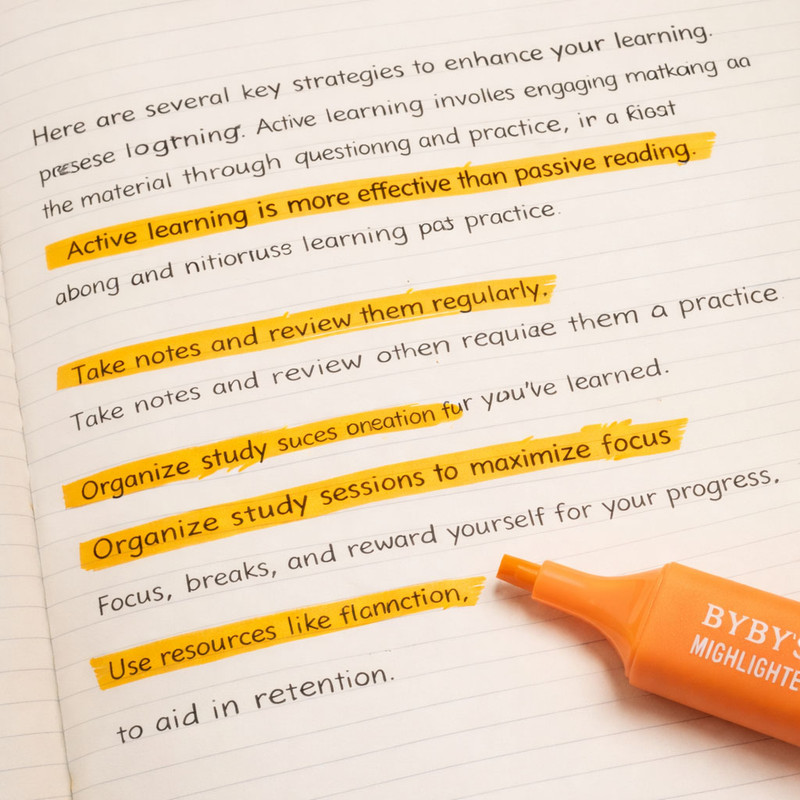 Here are several key strategies to enhance your learning.
logrning. Active learning involles engaging matkaing aa
the material through questionng and practice, ir a
Active learning is more effective than passive reading.
abong and nitioriuss learning pat practice.
Take notes and review them regularly.
Take notes and review othen requiae them a practice
Organize study suces oneation fur you've learned.
Organize study sessions to maximize focus
Focus, breaks, and reward yourself for your progress.
Use resources like flannction,
to aid in retention.
BYBY'S
MIGHLIGHTE